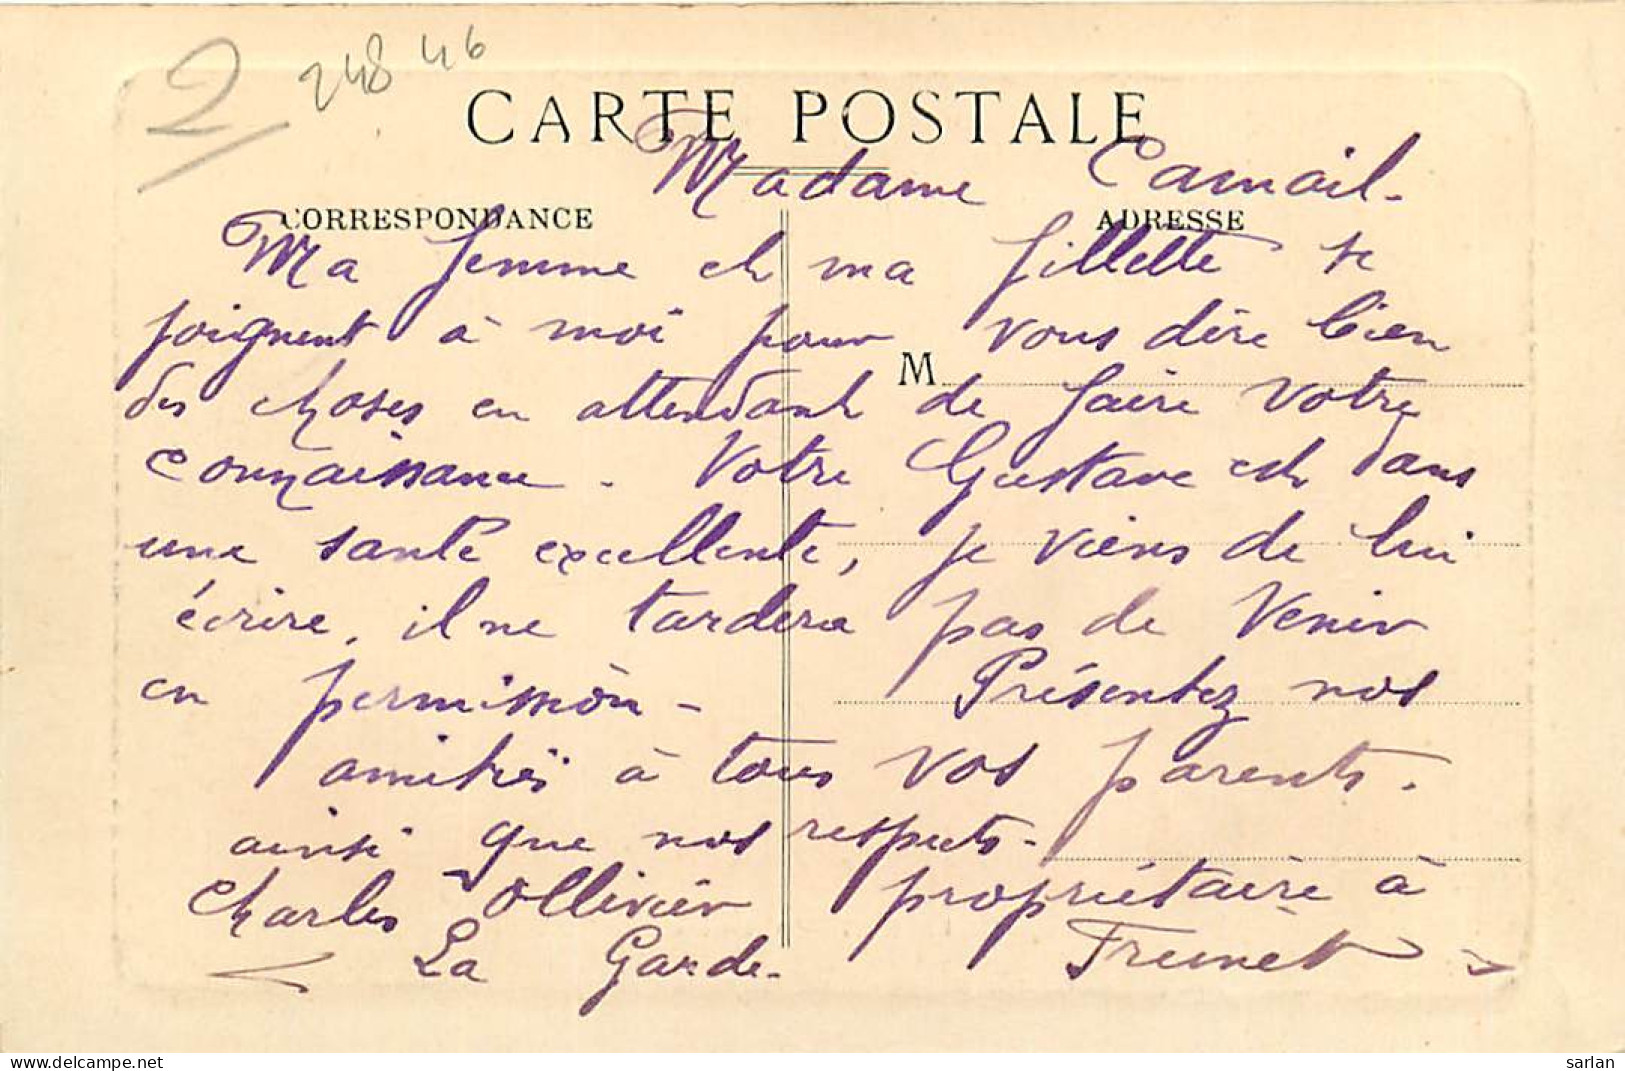 2
24846
CARTE POSTALE
Madame Camail.
CORRESPONDANCE
ADRESSE
Ma femme et ma fillette se
joignent à moi pour vous dire bien
M
des choses en attendant de faire votre
connaissance. Votre Gustave est dans
une santé excellente, je viens de lui
écrire, il ne tardera pas de venir
en permission - Présentez nos
amitiés à tous vos parents.
ainsi que nos respects.
Charles Ollivier propriétaire à
La Garde - Freinet
delcampe.net
sarlan